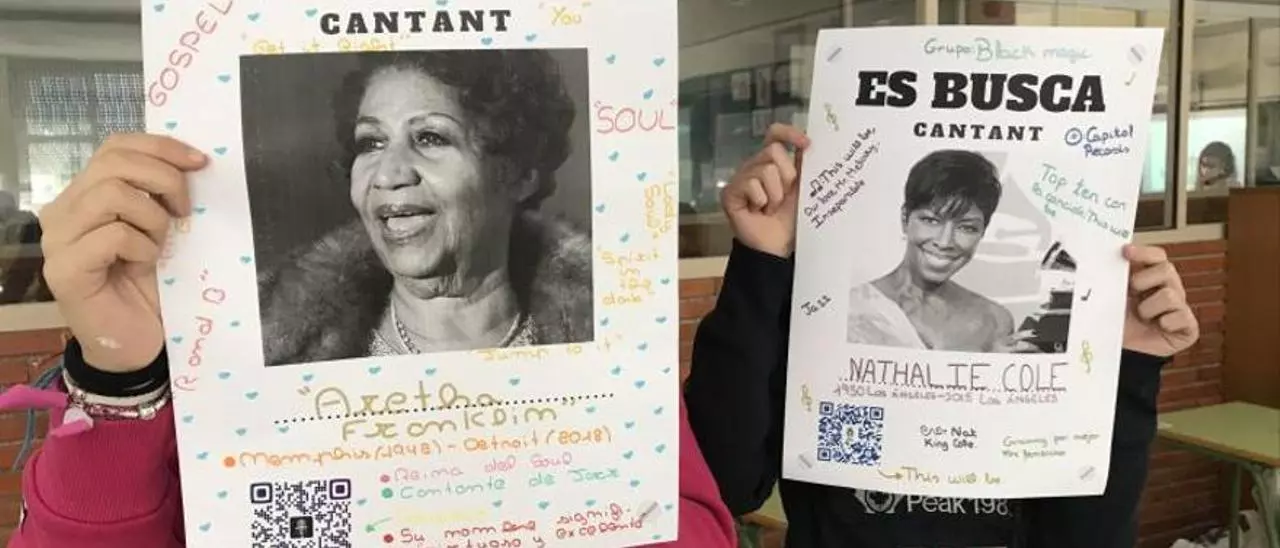 CANTANT
GOSPEL
"You"
"Get it Right"
"SOUL"
"Spirit
in
the
dark"
Rand B
"Jump to it"
"Aretha
FranKDim"
Memphis (1942) - Detroit (2018)
Reina del Soul
Cantante de Jazz
Su nombre signifi
virtuosa y excelente
Grupo: Black magic
ES BUSCA
CANTANT
Capitol
Records
This will be,
Our love, Mr Melody,
Inseparable
Top ten con
la canción: This will
be
Jazz
NATHALIE COLE
1950 Los Ángeles - 2015 Los Ángeles
Nat
King Cole.
Grammy por mejor
This will be.
Peak 198